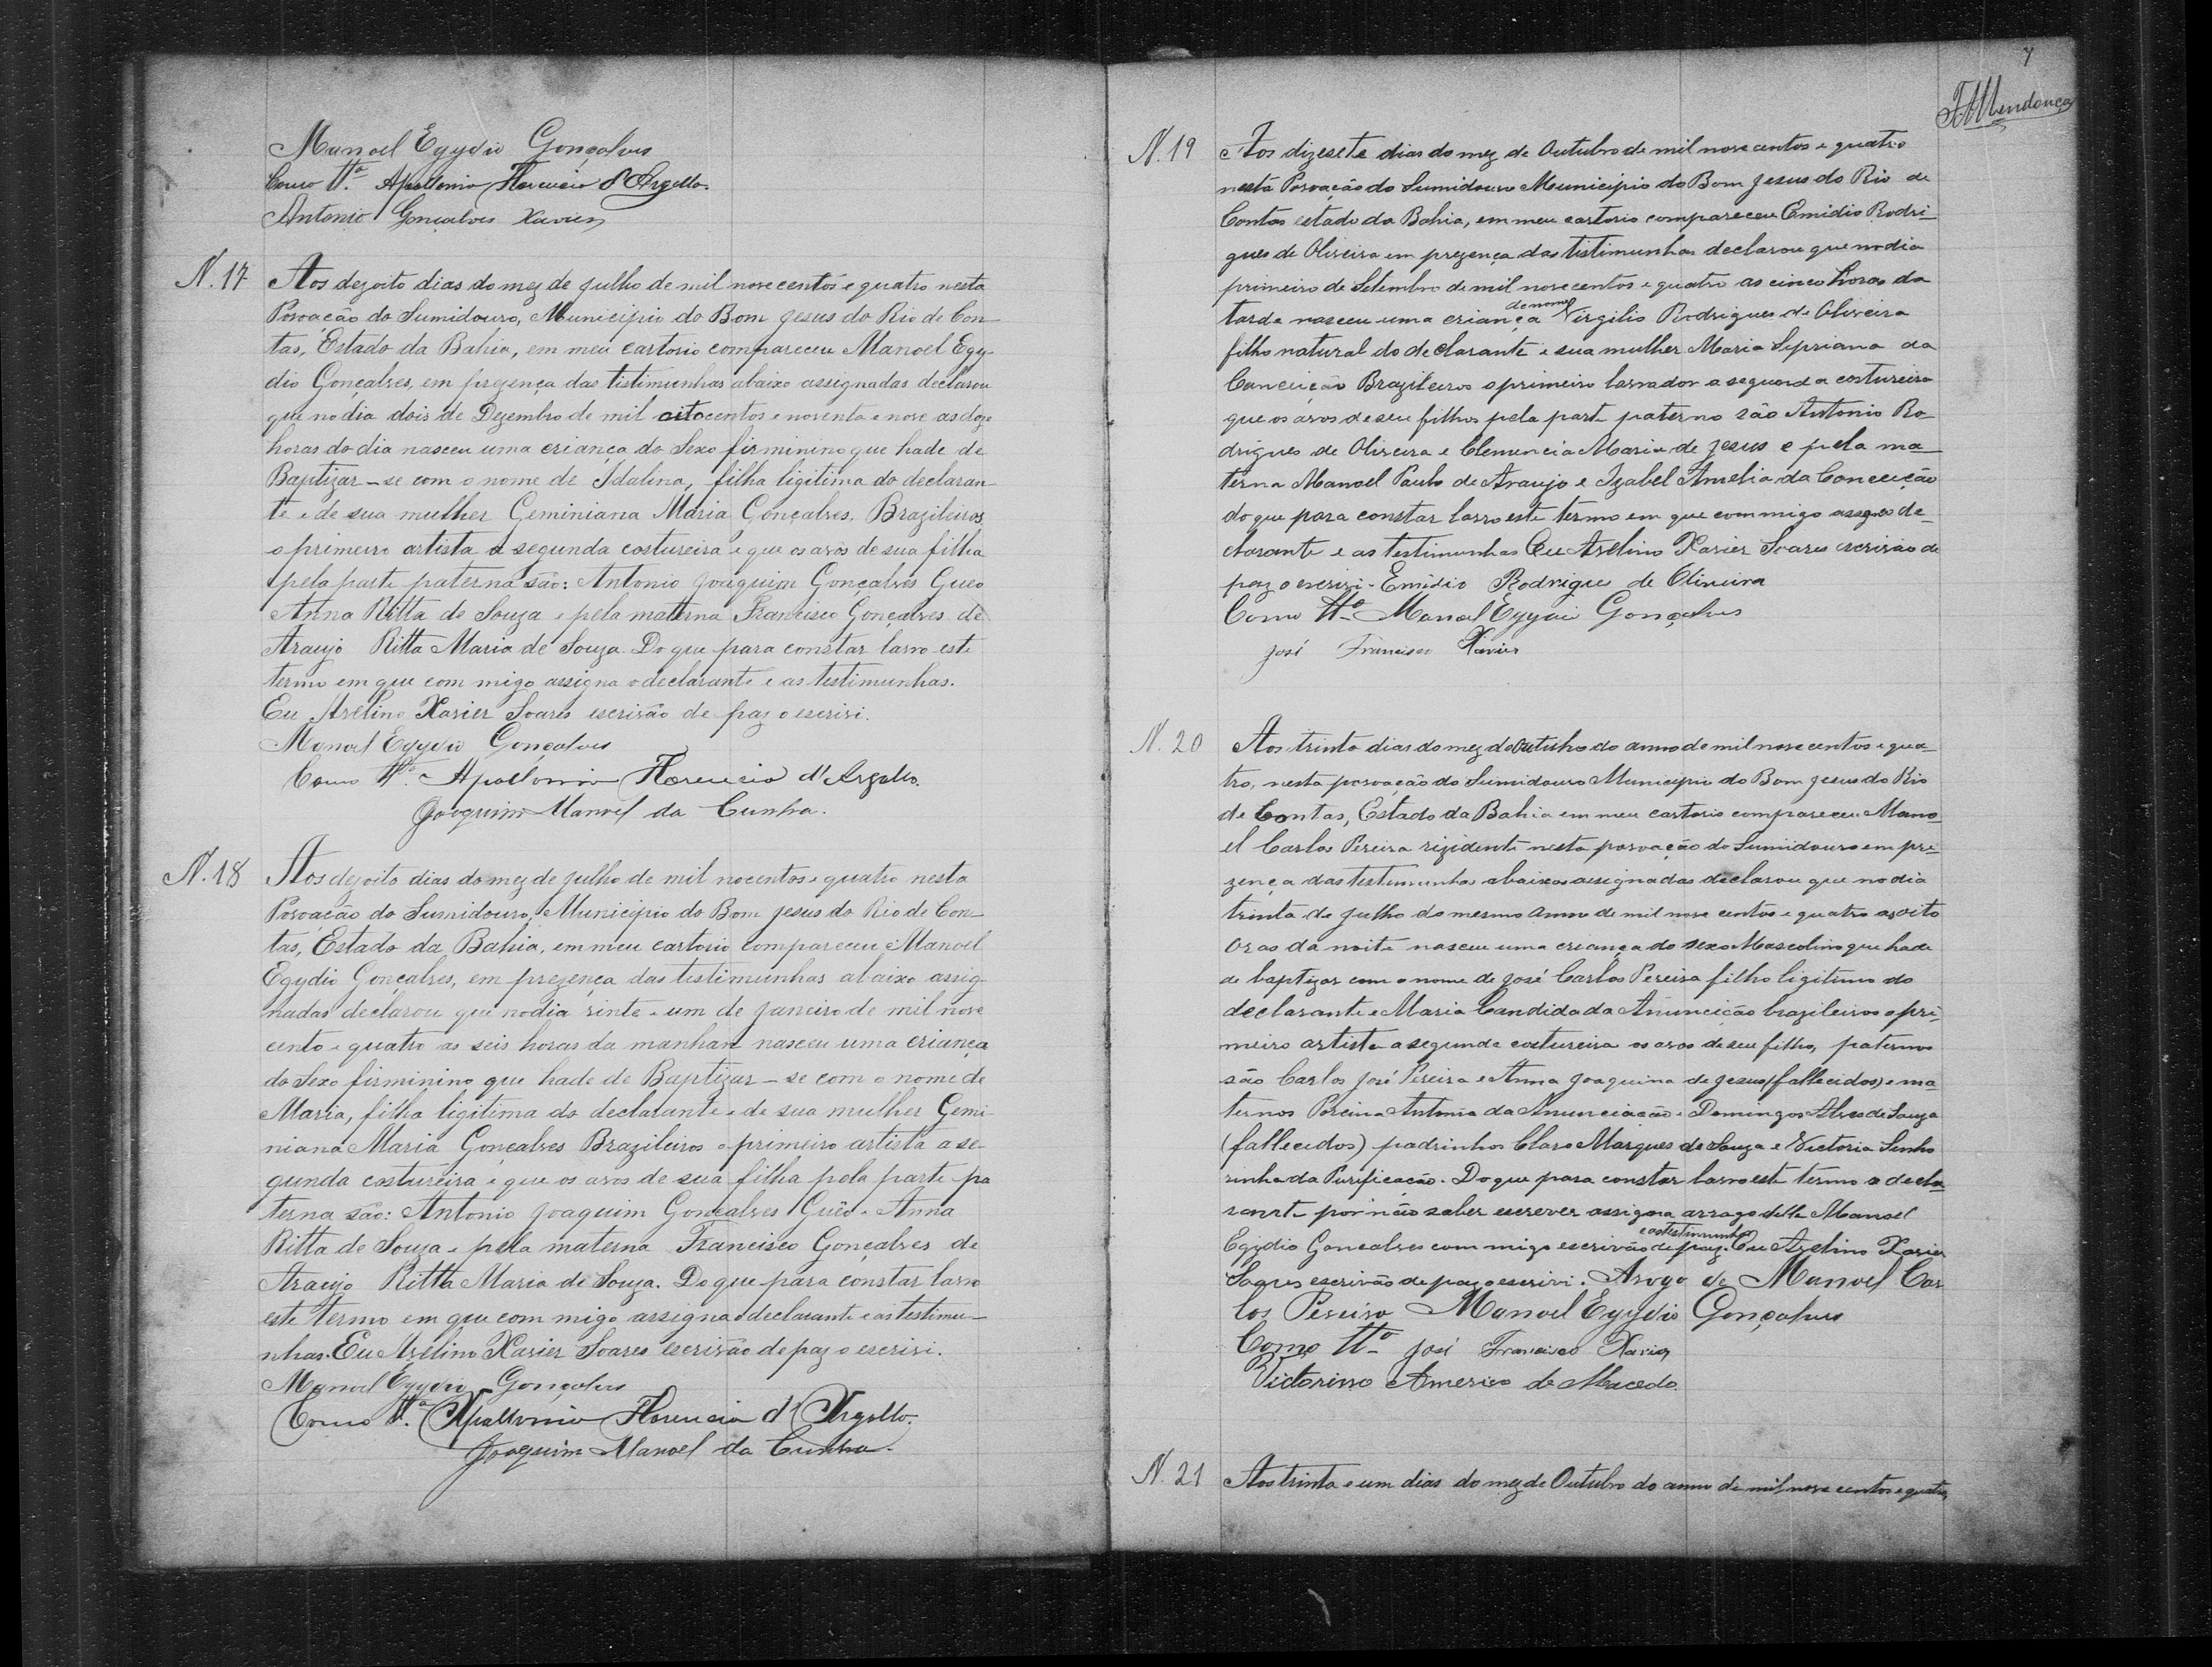 Manoel Egydio Gonçalves
Como Tª. Apollonio Florencio d'Argollo.
Antonio Gonçalves Xavier
N. 17 Aos dezoito dias do mez de julho de mil novecentos e quatro nesta
Povoação do Sumidouro, Municipio do Bom Jesus do Rio de Con-
tas, Estado da Bahia, em meu cartorio compareceu Manoel Egy-
dio Gonçalves, em prezença das tistimunhas abaixo assignadas declarou
que no dia dois de Dezembro de mil oitocentos e noventa e nove as doze
horas do dia nasceu uma criança do Sexo firminino que hade de
Baptizar-se com o nome de Idalina, filha ligitima do declaran-
te e de sua mulher Geminiana Maria Gonçalves, Brazileiros,
o primeiro artista a segunda costureira e que os avós de sua filha
pela parte paterna são: Antonio Joaquim Gonçalves Gueo
Anna Ritta de Souza e pela materna Francisco Gonçalves de
Araujo Ritta Maria de Souza. Do que para constar lavro este
termo em que com migo assigna o declarante e as testimunhas.
Eu Avelino Xavier Soares escrivão de paz o escrivi.
Manoel Egydio Gonçalves
Como Tª. Apollonio Florencio d'Argollo.
Joaquim Manoel da Cunha.
N. 18 Aos dezoito dias do mez de julho de mil nocentos e quatro nesta
Povoação do Sumidouro, Municipio do Bom Jesus do Rio de Con-
tas, Estado da Bahia, em meu cartorio compareceu Manoel
Egydio Gonçalves, em prezença das testimunhas abaixo assig-
nadas declarou que no dia vinte e um de Janeiro de mil nove
cento e quatro as seis horas da manhan nasceu uma criança
do Sexo firminino que hade de Baptizar-se com o nome de
Maria, filha ligitima do declarante e de sua mulher Gemi-
niana Maria Gonçalves Brazileiros o primeiro artista a se-
gunda costureira e que os avos de sua filha pela parte pa
terna são: Antonio Joaquim Gonçalves Guêo e Anna
Ritta de Souza e pela materna Francisco Gonçalves de
Araujo Ritta Maria de Souza. Do que para constar lavro
este termo em que com migo assigna o declarante e as testimu-
nhas. Eu Avelino Xavier Soares escrivão de paz o escrivi.
Manoel Egydio Gonçalves
Como Tª. Apollonio Florencio d'Argollo.
Joaquim Manoel da Cunha.
7
Mendonça
N. 19 Aos dizesete dias do mez de Outubro de mil novecentos e quatro
nesta Povoação do Sumidouro Municipio do Bom Jesus do Rio de
Contas estado da Bahia, em meu cartorio compareceu Emidio Rodri-
gues de Oliveira em prezença das tistimunhas declarou que no dia
primeiro de Setembro de mil novecentos e quatro as cinco horas da
tarde nasceu uma criança de nome Virgilio Rodrigues de Oliveira
filho natural do declarante e sua mulher Maria Sipriana da
Conceição Brazileiros o primeiro lavrador a segunda costureira
que os avos de seu filhos pela parte paterno são Antonio Ro-
drigues de Oliveira e Clemencia Maria de Jesus e pela ma-
terna Manoel Paulo de Araujo e Izabel Amelia da Conceição
do que para constar lavro este termo em que commigo de-
clarante e as testimunhas Eu Avelino Xavier Soares escrivão de
paz o escrivi. Emidio Rodrigues de Oliveira
Como Ttª Manoel Egydio Gonçalves
José Francisco Xavier
N. 20 Aos trinta dias do mez do Outubro do anno de mil novecentos e qua-
tro, nesta povoação do Sumidouro Municipio do Bom Jesus do Rio
de Contas, Estado da Bahia em meu cartorio compareceu Mano-
el Carlos Pereira rizidente nesta povoação do Sumidouro em pre-
zença das testimunhas abaixos assignadas declarou que no dia
trinta de julho do mesmo anno de mil nove centos e quatro as oito
oras da noite nasceu uma criança do sexo Mascolino que hade
de baptizar com o nome de José Carlos Pereira filho ligitimo do
declarante e Maria Candida da Anunceição brazileiros o pri-
meiro artista a segunda costureira os avos de seu filho, paternos
são Carlos José Pereira e Anna Joaquina de Jesus (fallecidos) e ma-
ternos Antonia da Anunciação e Domingos Alves de Souza
(fallecidos) padrinhos Claro Marques de Souza e Victoria Senho
rinha da Purificação. Do que para constar lavro este termo o decla-
rante por não saber escrever assigna arrogo delle Manoel
Egydio Gonçalves com migo escrivão de paz. e as testimunhas Eu Avelino Xavier
Soares escrivão de paz o escrivi. Arogo de Manoel Car
los Pereira Manoel Egydio Gonçalves
Como Ttª José Francisco Xavier
Victorino Americo de Macedo.
N. 21 Aos trinta e um dias do mez de Outubro do anno de mil nove centos e quatro,